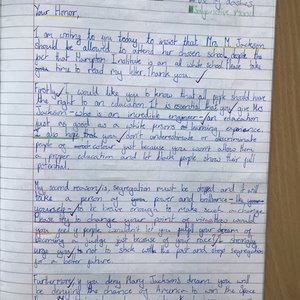 Use of dashes
Subjunctive mood
Your Honor,
I am writing to you today to insist that Mrs M. Jackson
should be allowed to attend her chosen school despite the
fact that Hampton Institute is an all white school. Please take
time to read my letter. Thank you.
Firstly, I would like you to know that all people should have
the right to an education. It is essential that you give Mrs
Jackson - who is an incredible engineer - an education
just as good as a white person's learning experience.
I also hope that you don't underestimate or discriminate
people of colour just because you won't allow them
a proper education and let black people show their full
potential.
My second reason is, segregation must be stopped and it will
take a person of power and brilliance - like
yourself - to be brave enough to make such a change.
Please try to change your point of view. How would
you feel if people wouldn't let you fulfil your dream of
becoming a judge just because of your race? I strongly
urge you to not to stick with the past and stop segregation
for a better future.
Furthermore, if you deny Mary Jackson's dream you will
be denying the chance of America to win the space